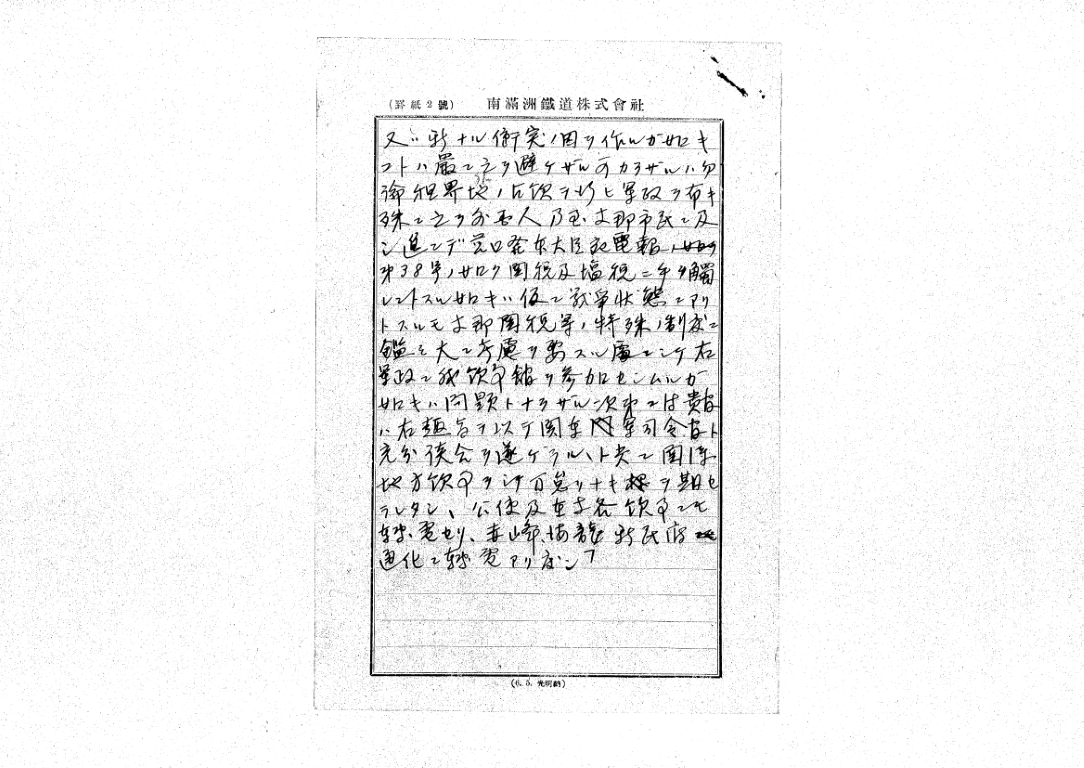 (罫紙2號) 南滿洲鐵道株式會社
又ハ新ナル衝突ノ因ヲ作ルガ如キ
コトハ嚴ニ之ヲ避ケザル可カラザルハ勿
論 地ノ占領ヲ行ヒ軍政ヲ布キ
殊ニ之ヲ外国人乃至支那市民ニ及
シ進ンデ 發本大臣宛電報ノ如ク
第38号ノ如ク関税及塩税ニ手ヲ觸
レントスル如キハ仮ニ戦争状態ニアリ
トスルモ支那関税等ノ特殊ノ制度ニ
鑑ミ大ニ考慮ヲ要スル處ニシテ右
軍政ニ我領事館ヲ参加センムルガ
如キハ問題トナラザル次第ニ付貴官
ハ右趣旨ヲ以テ関東軍司令官ト
充分談合ヲ遂ゲラルヽト共ニ関係
地方領事ヲシテ万遺リナキ様ヲ期セ
ラレタシ、公使及在支各領事ニモ
轉電セリ、赤峰、海龍 新民府
通化ニ轉電アリ度シ」
(6. 5. 光明納)